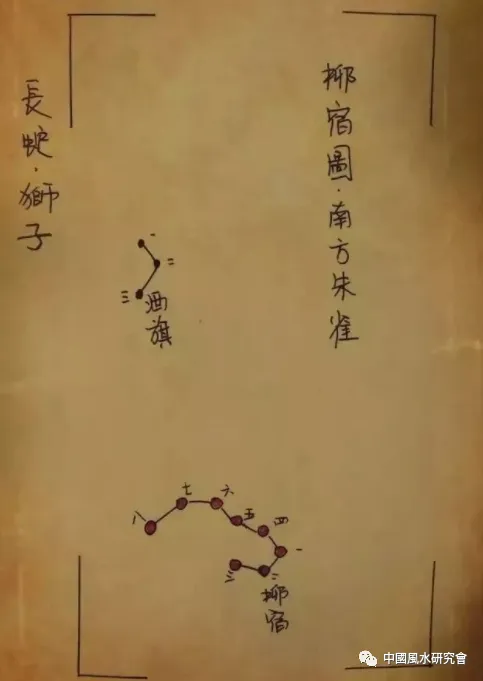 柳宿圖·南方朱雀
長蛇·獅子
一
二
三
酒旗
七
六
八
五
四
一
二
三
柳宿
中國風水研究會